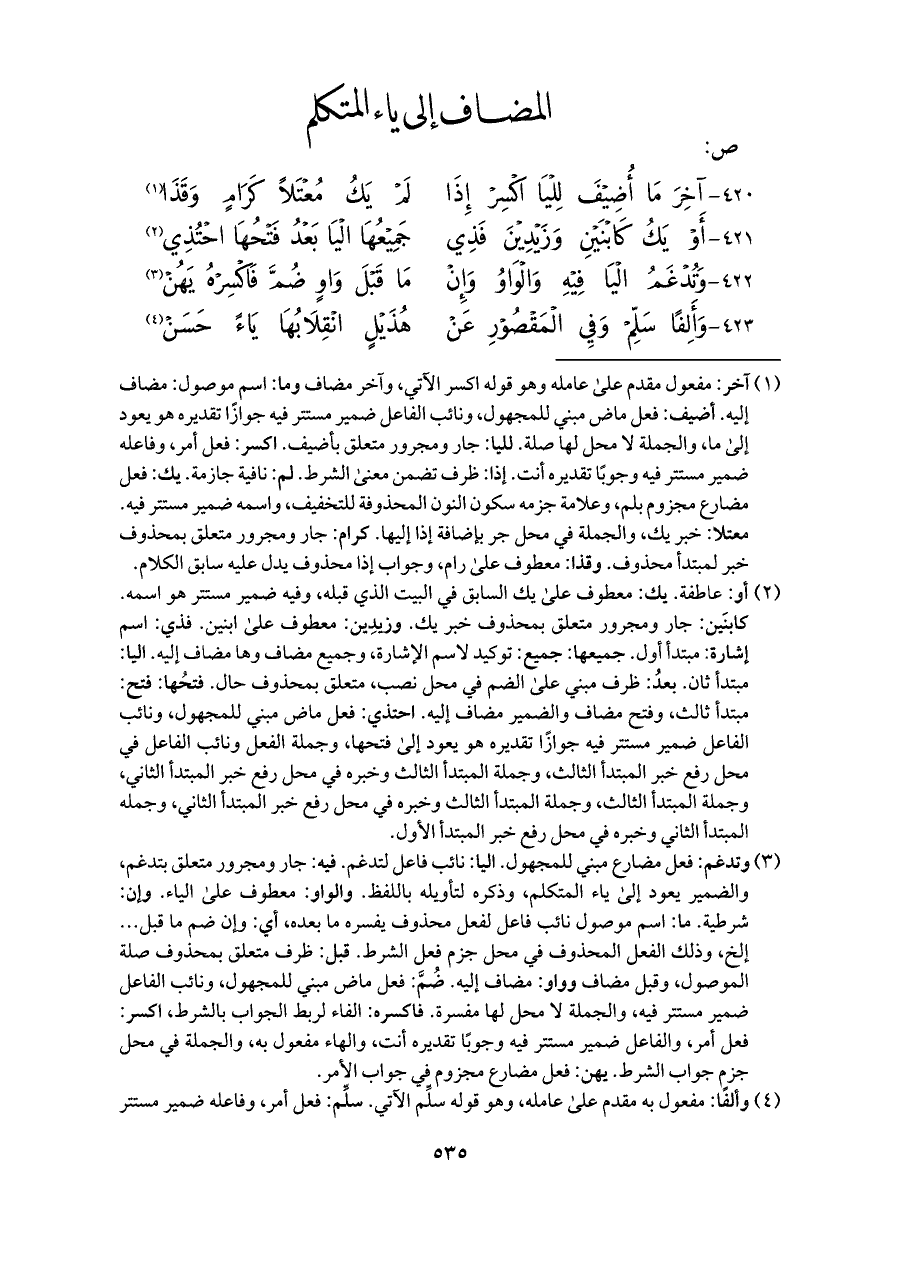 المضاف إلى ياء المتكلم
ص:
٤٢٠- آخِرَ مَا أُضِيْفَ لِلْيَا اكْسِرْ إِذَا لَمْ يَكُ مُعْتَلاًّ كَرَامٍ وَقَذَا(١)
٤٢١- أَوْ يَكُ كَابْنَيْنِ وَزَيْدِيْنَ فَذِي جَمِيْعُهَا الْيَا بَعْدُ فَتْحُهَا احْتُذِي(٢)
٤٢٢- وَتُدْغَمُ الْيَا فِيْهِ وَالْوَاوُ وَإِنْ مَا قَبْلَ وَاوٍ ضُمَّ فَاكْسِرْهُ يَهُنْ(٣)
٤٢٣- وَأَلِفًا سَلِّمْ وَفِي الْمَقْصُوْرِ عَنْ هُذَيْلٍ انْقِلَابُهَا يَاءً حَسَنْ(٤)
(١) آخر: مفعول مقدم علىٰ عامله وهو قوله اكسر الآتي، وآخر مضاف وما: اسم موصول: مضاف
إليه. أضيف: فعل ماض مبني للمجهول، ونائب الفاعل ضمير مستتر فيه جوازًا تقديره هو يعود
إلىٰ ما، والجملة لا محل لها صلة. لليا: جار ومجرور متعلق بأضيف. اكسر: فعل أمر، وفاعله
ضمير مستتر فيه وجوبًا تقديره أنت. إذا: ظرف تضمن معنىٰ الشرط. لم: نافية جازمة. يك: فعل
مضارع مجزوم بلم، وعلامة جزمه سكون النون المحذوفة للتخفيف، واسمه ضمير مستتر فيه.
معتلا: خبر يك، والجملة في محل جر بإضافة إذا إليها. كرام: جار ومجرور متعلق بمحذوف
خبر لمبتدأ محذوف. وقذا: معطوف علىٰ رام، وجواب إذا محذوف يدل عليه سابق الكلام.
(٢) أو: عاطفة. يك: معطوف علىٰ يك السابق في البيت الذي قبله، وفيه ضمير مستتر هو اسمه.
كابنَين: جار ومجرور متعلق بمحذوف خبر يك. وزيدِين: معطوف علىٰ ابنين. فذي: اسم
إشارة: مبتدأ أول. جميعها: جميع: توكيد لاسم الإشارة، وجميع مضاف وها مضاف إليه. اليا:
مبتدأ ثان. بعدُ: ظرف مبني علىٰ الضم في محل نصب، متعلق بمحذوف حال. فتحُها: فتح:
مبتدأ ثالث، وفتح مضاف والضمير مضاف إليه. احتذي: فعل ماض مبني للمجهول، ونائب
الفاعل ضمير مستتر فيه جوازًا تقديره هو يعود إلىٰ فتحها، وجملة الفعل ونائب الفاعل في
محل رفع خبر المبتدأ الثالث، وجملة المبتدأ الثالث وخبره في محل رفع خبر المبتدأ الثاني،
وجملة المبتدأ الثالث، وجملة المبتدأ الثالث وخبره في محل رفع خبر المبتدأ الثاني، وجمله
المبتدأ الثاني وخبره في محل رفع خبر المبتدأ الأول.
(٣) وتدغم: فعل مضارع مبني للمجهول. اليا: نائب فاعل لتدغم. فيه: جار ومجرور متعلق بتدغم،
والضمير يعود إلىٰ ياء المتكلم، وذكره لتأويله باللفظ. والواو: معطوف علىٰ الياء. وإن:
شرطية. ما: اسم موصول نائب فاعل لفعل محذوف يفسره ما بعده، أي: وإن ضم ما قبل...
إلخ، وذلك الفعل المحذوف في محل جزم فعل الشرط. قبل: ظرف متعلق بمحذوف صلة
الموصول، وقبل مضاف وواو: مضاف إليه. ضُمَّ: فعل ماض مبني للمجهول، ونائب الفاعل
ضمير مستتر فيه، والجملة لا محل لها مفسرة. فاكسره: الفاء لربط الجواب بالشرط، اكسر:
فعل أمر، والفاعل ضمير مستتر فيه وجوبًا تقديره أنت، والهاء مفعول به، والجملة في محل
جزم جواب الشرط. يهن: فعل مضارع مجزوم في جواب الأمر.
(٤) وألفًا: مفعول به مقدم علىٰ عامله، وهو قوله سلِّم الآتي. سلِّم: فعل أمر، وفاعله ضمير مستتر
٥٣٥